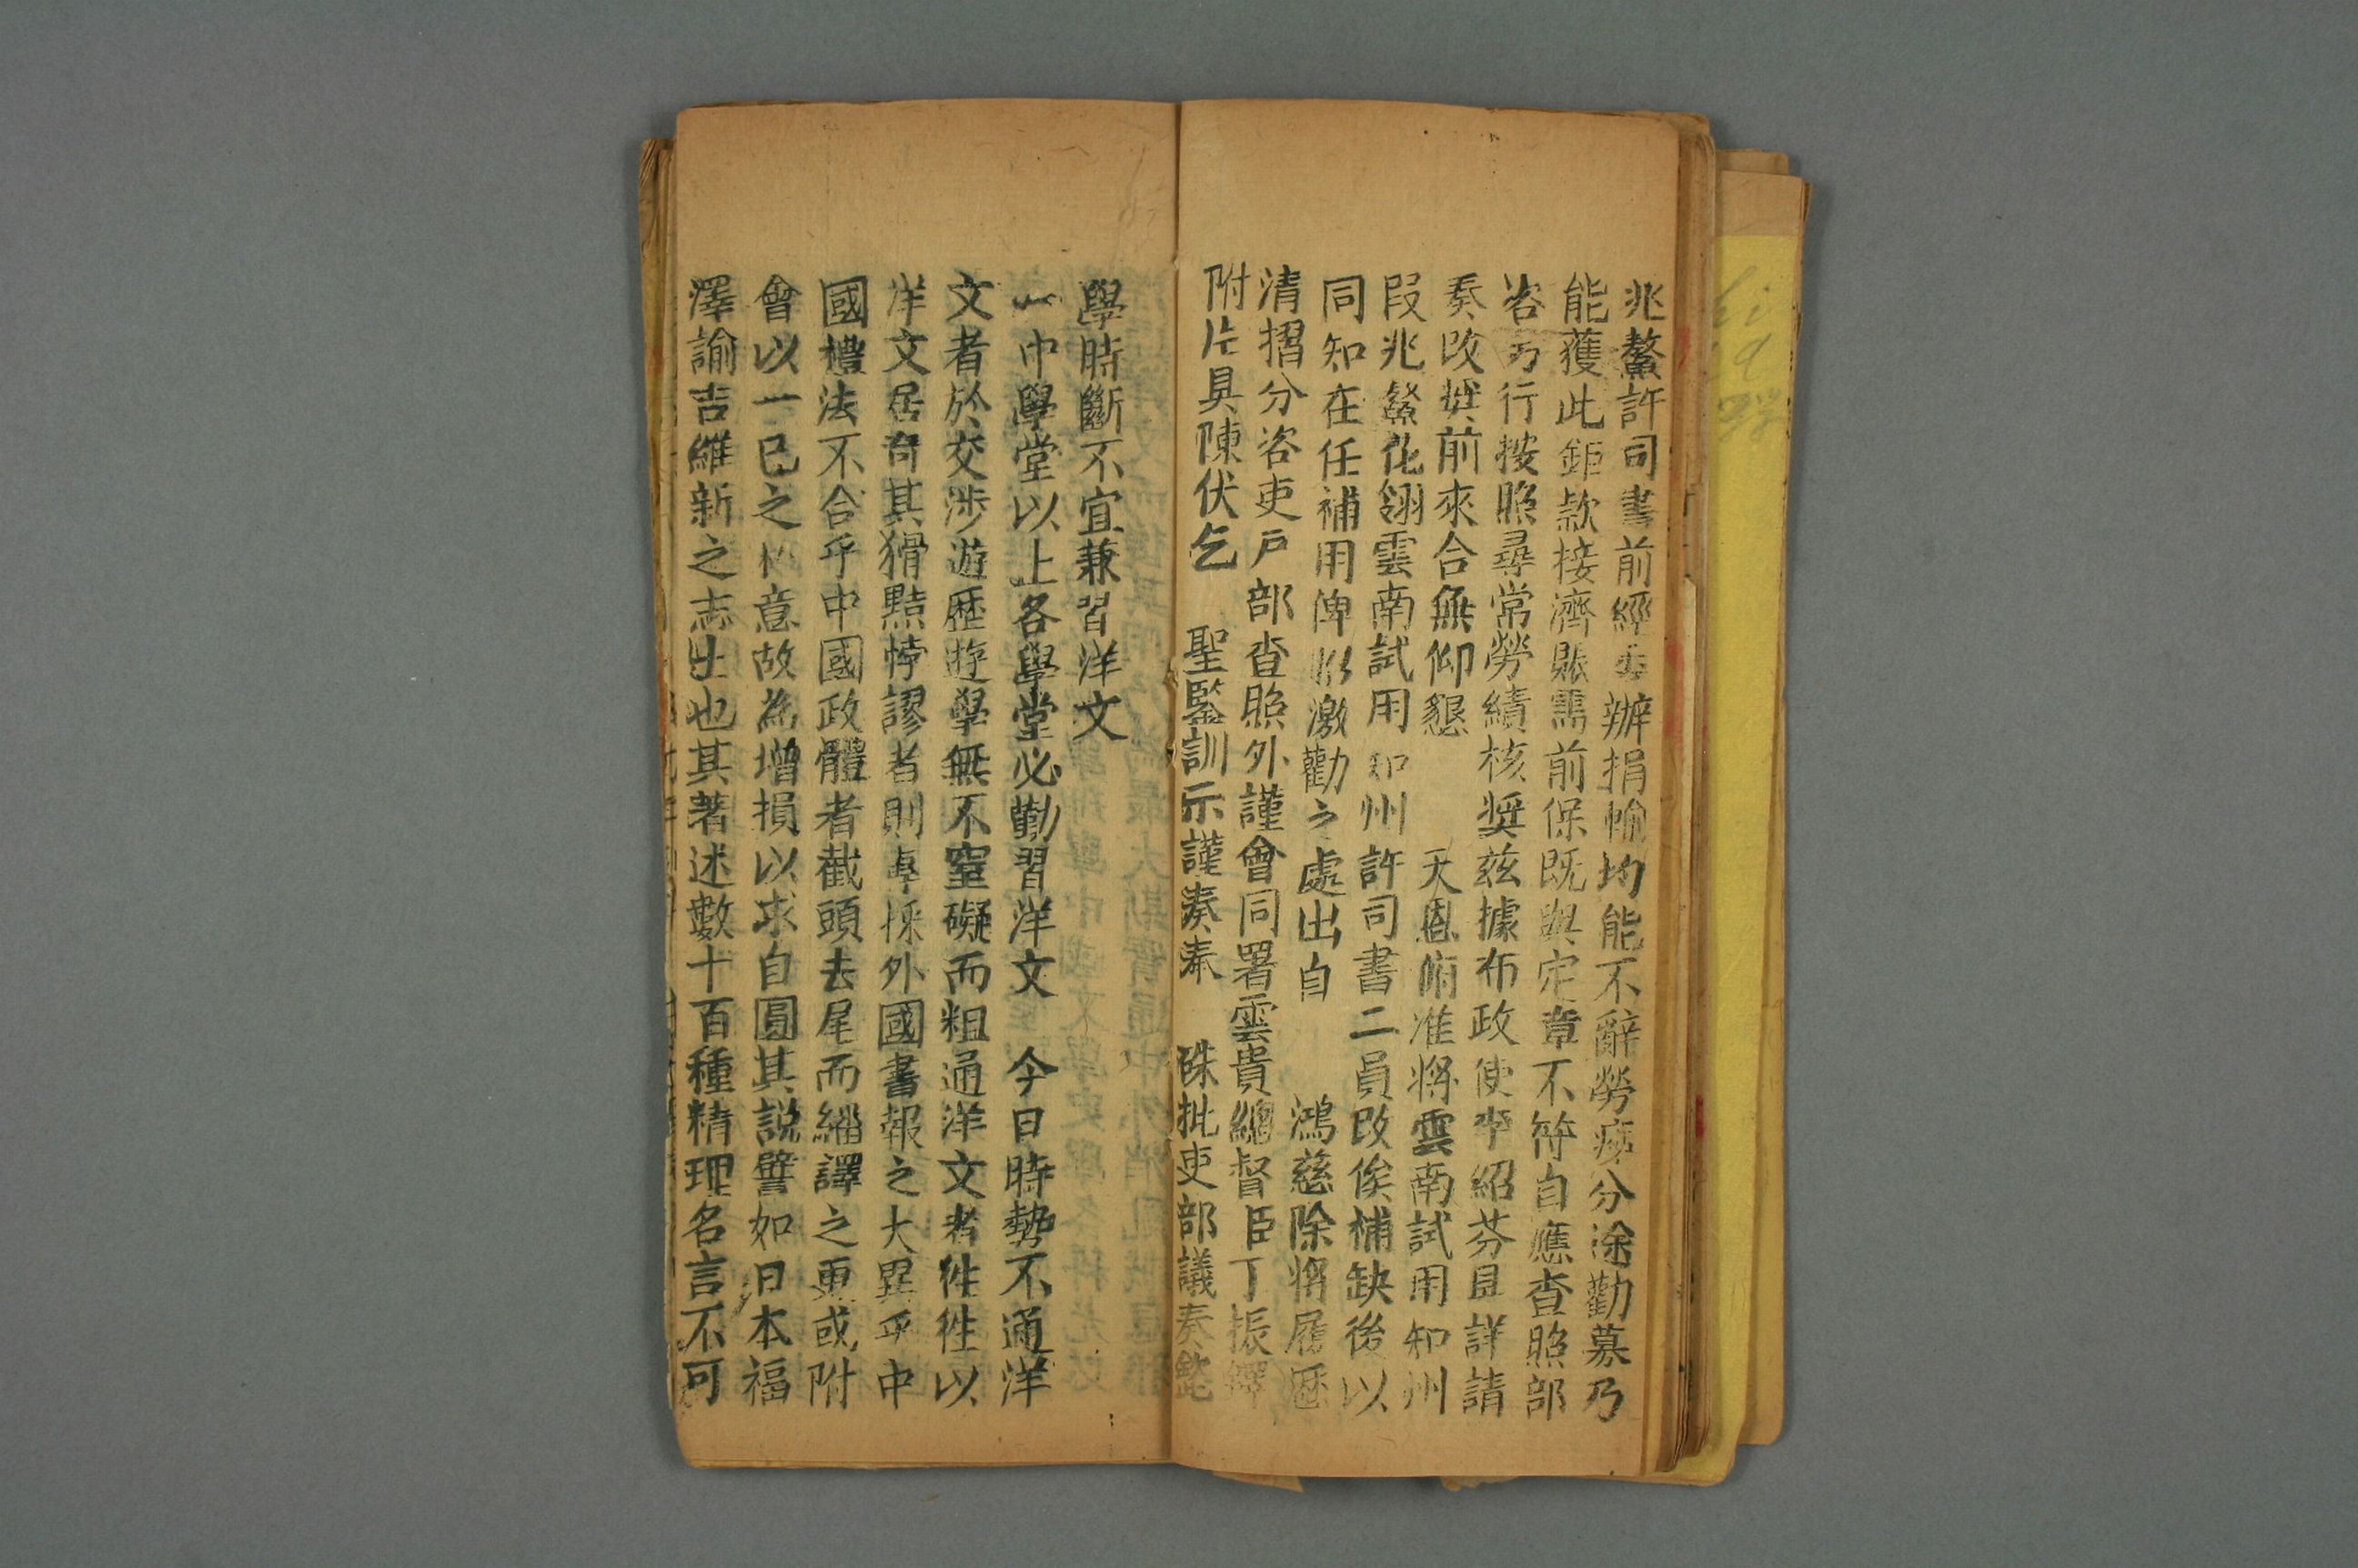 兆鰲許司書前經委辦捐輸均能不辭勞瘁分途勸募乃
能獲此鉅款接濟賑需前保既與定章不符自應查照部
咨另行按照尋常勞績核奬兹據布政使李紹芬具詳請
奏改奬前來合無仰懇 天恩俯准將雲南試用知州
段兆鰲花翎雲南試用知州許司書二員改俟補缺後以
同知在任補用俾以激勸之處出自 鴻慈除將履歷
清摺分咨吏戸部查照外謹會同署雲貴總督臣丁振鐸
附片具陳伏乞 聖鑒訓示謹奏奉 硃批吏部議奏
學時斷不宜兼習洋文
一中學堂以上各學堂必勤習洋文 今日時勢不通洋
文者於交涉遊歷遊學無不窒礙而粗通洋文者徃徃以
洋文居奇其猾黠悖謬者則專採外國書報之大異乎中
國禮法不合乎中國政體者截頭去尾而繙譯之更或附
會以一已之私意故為增損以求自圓其説譬如日本福
澤諭吉維新之志士也其著述數十百種精理名言不可